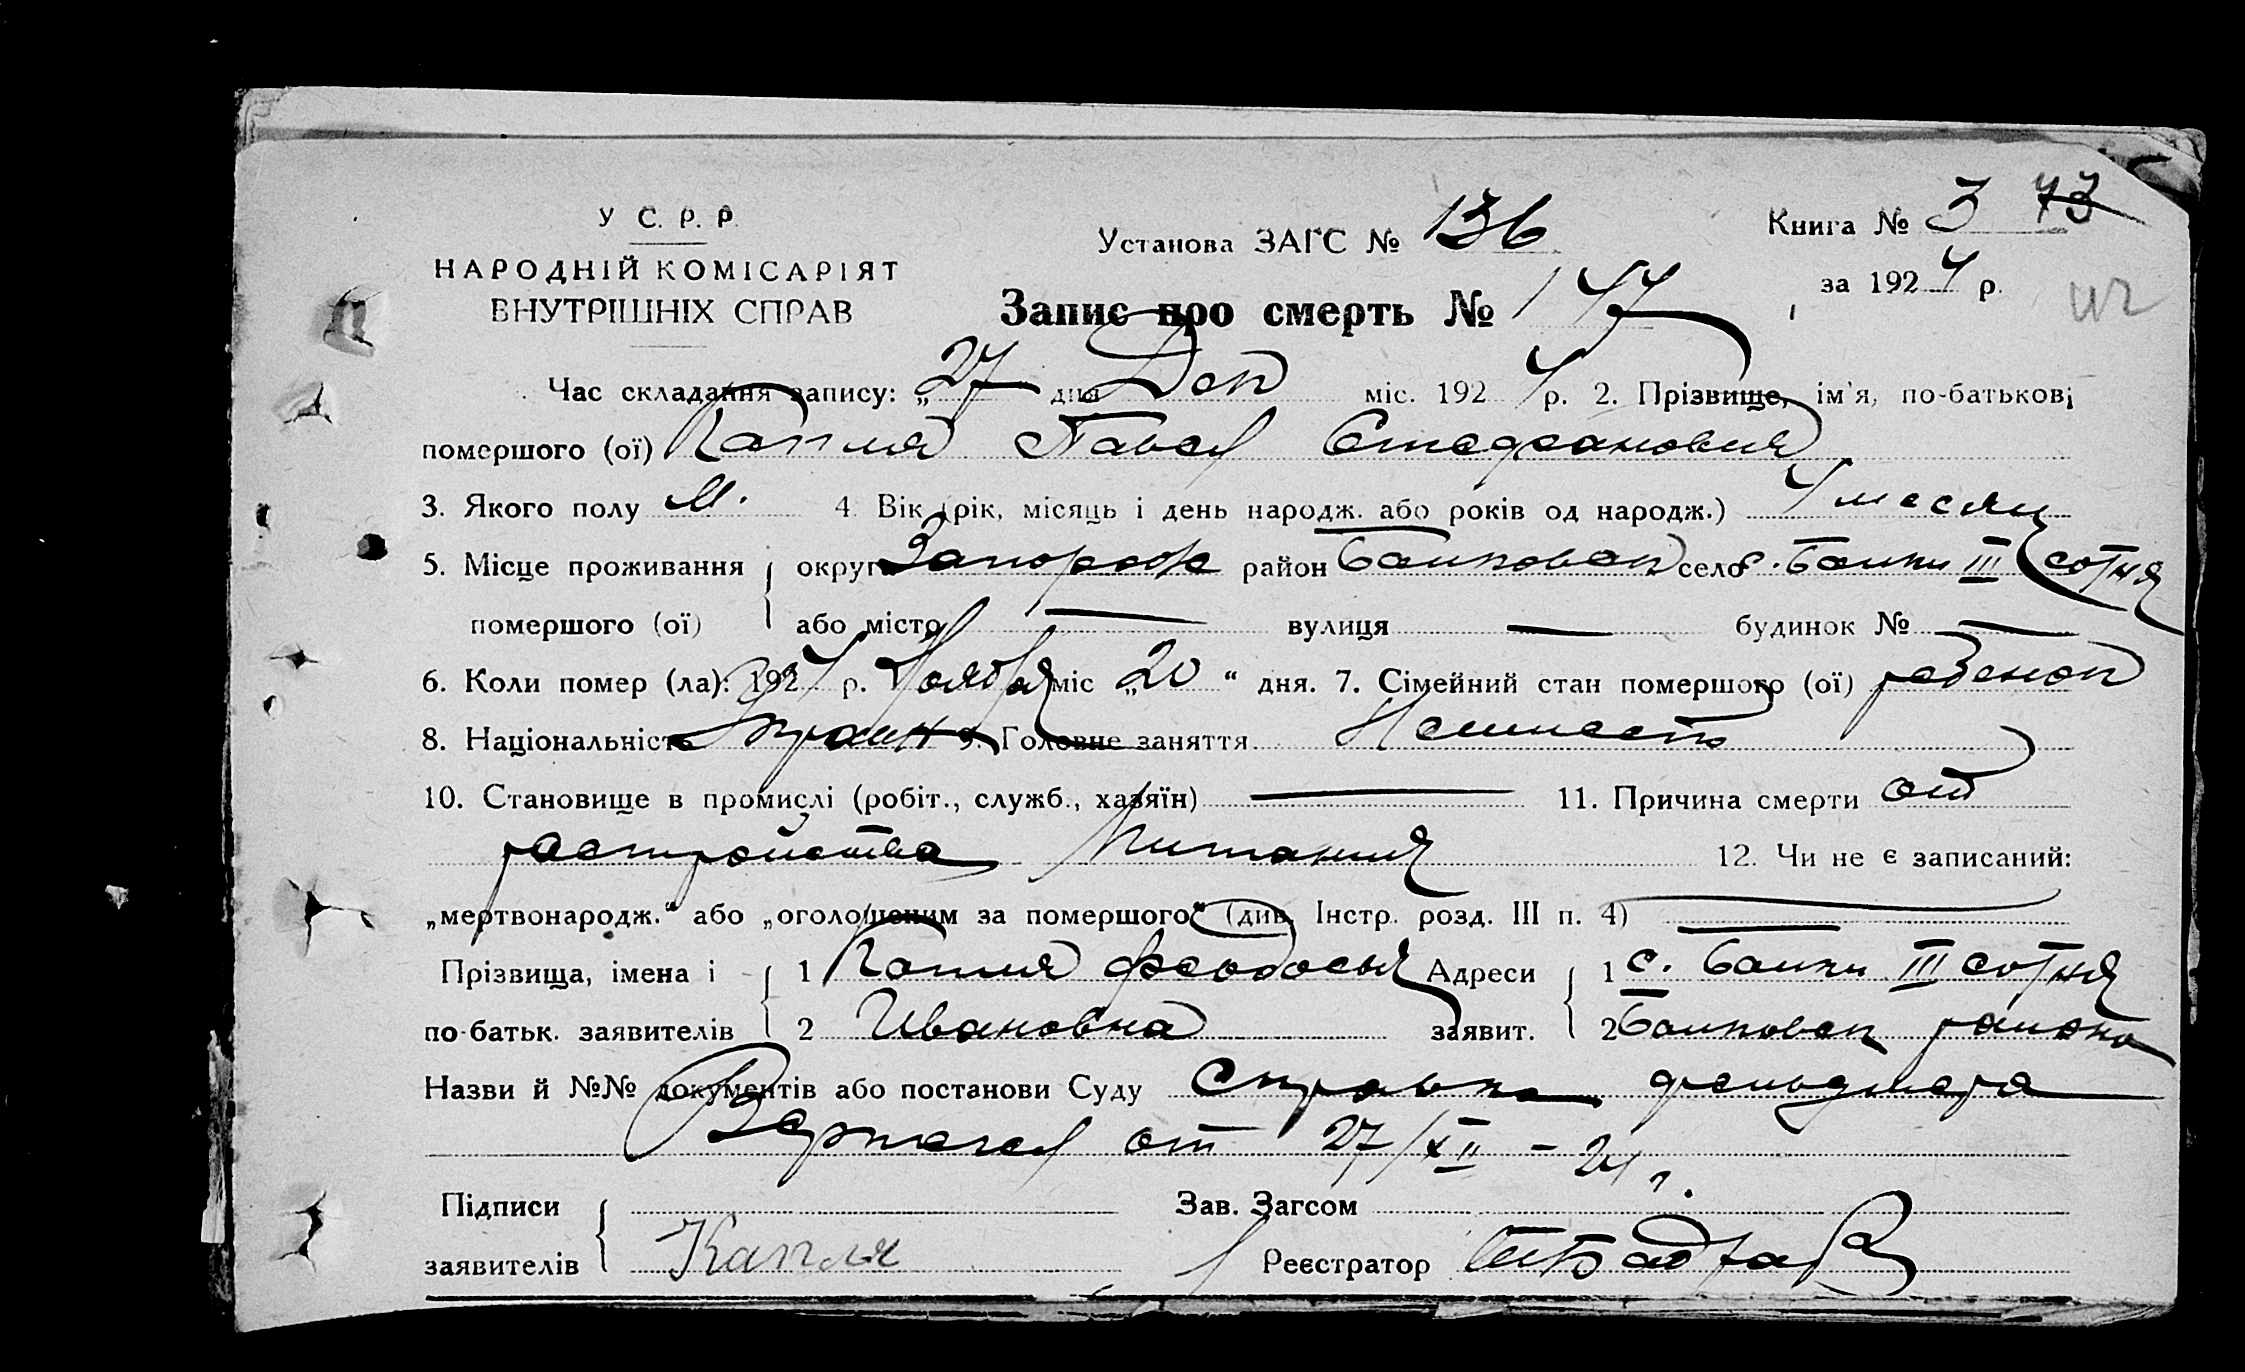 У. С. Р. Р.
НАРОДНІЙ КОМІСАРІЯТ
ВНУТРІШНІХ СПРАВ
Установа ЗАГС № 136
Книга № 3 73
за 1924 р.
Запис про смерть № 147
Час складання запису: „27 дня Дек міс. 1924 р. 2. Прізвище, ім'я, по-батькові
помершого (ої) Капля Павел Стефанович
3. Якого полу М. 4. Вік (рік, місяць і день народж. або років од народж.) 4 месяц
5. Місце проживання округа Запорож район Балковск село с. Балки III сотня
помершого (ої) або місто — вулиця — будинок № —
6. Коли помер (ла): 1924 р. Ноября міс „20“ дня. 7. Сімейний стан помершого (ої) ребенок
8. Національність Украин 9. Головне заняття
10. Становище в промислі (робіт., служб., хазяїн) — 11. Причина смерти от
растройства Питания 12. Чи не є записаний:
„мертвонародж.“ або „оголошеним за помершого“ (див. Інстр. розд. III п. 4) —
Прізвища, імена і 1 Капля Феодосья Адреси 1 с. Балки III сотня
по-батьк. заявителів 2 Ивановна заявит. 2 Балковск района
Назви й №№ документів або постанови Суду Справка фельдшера
от 27/XII – 24 г.
Підписи Зав. Загсом
заявителів Капля Реєстратор